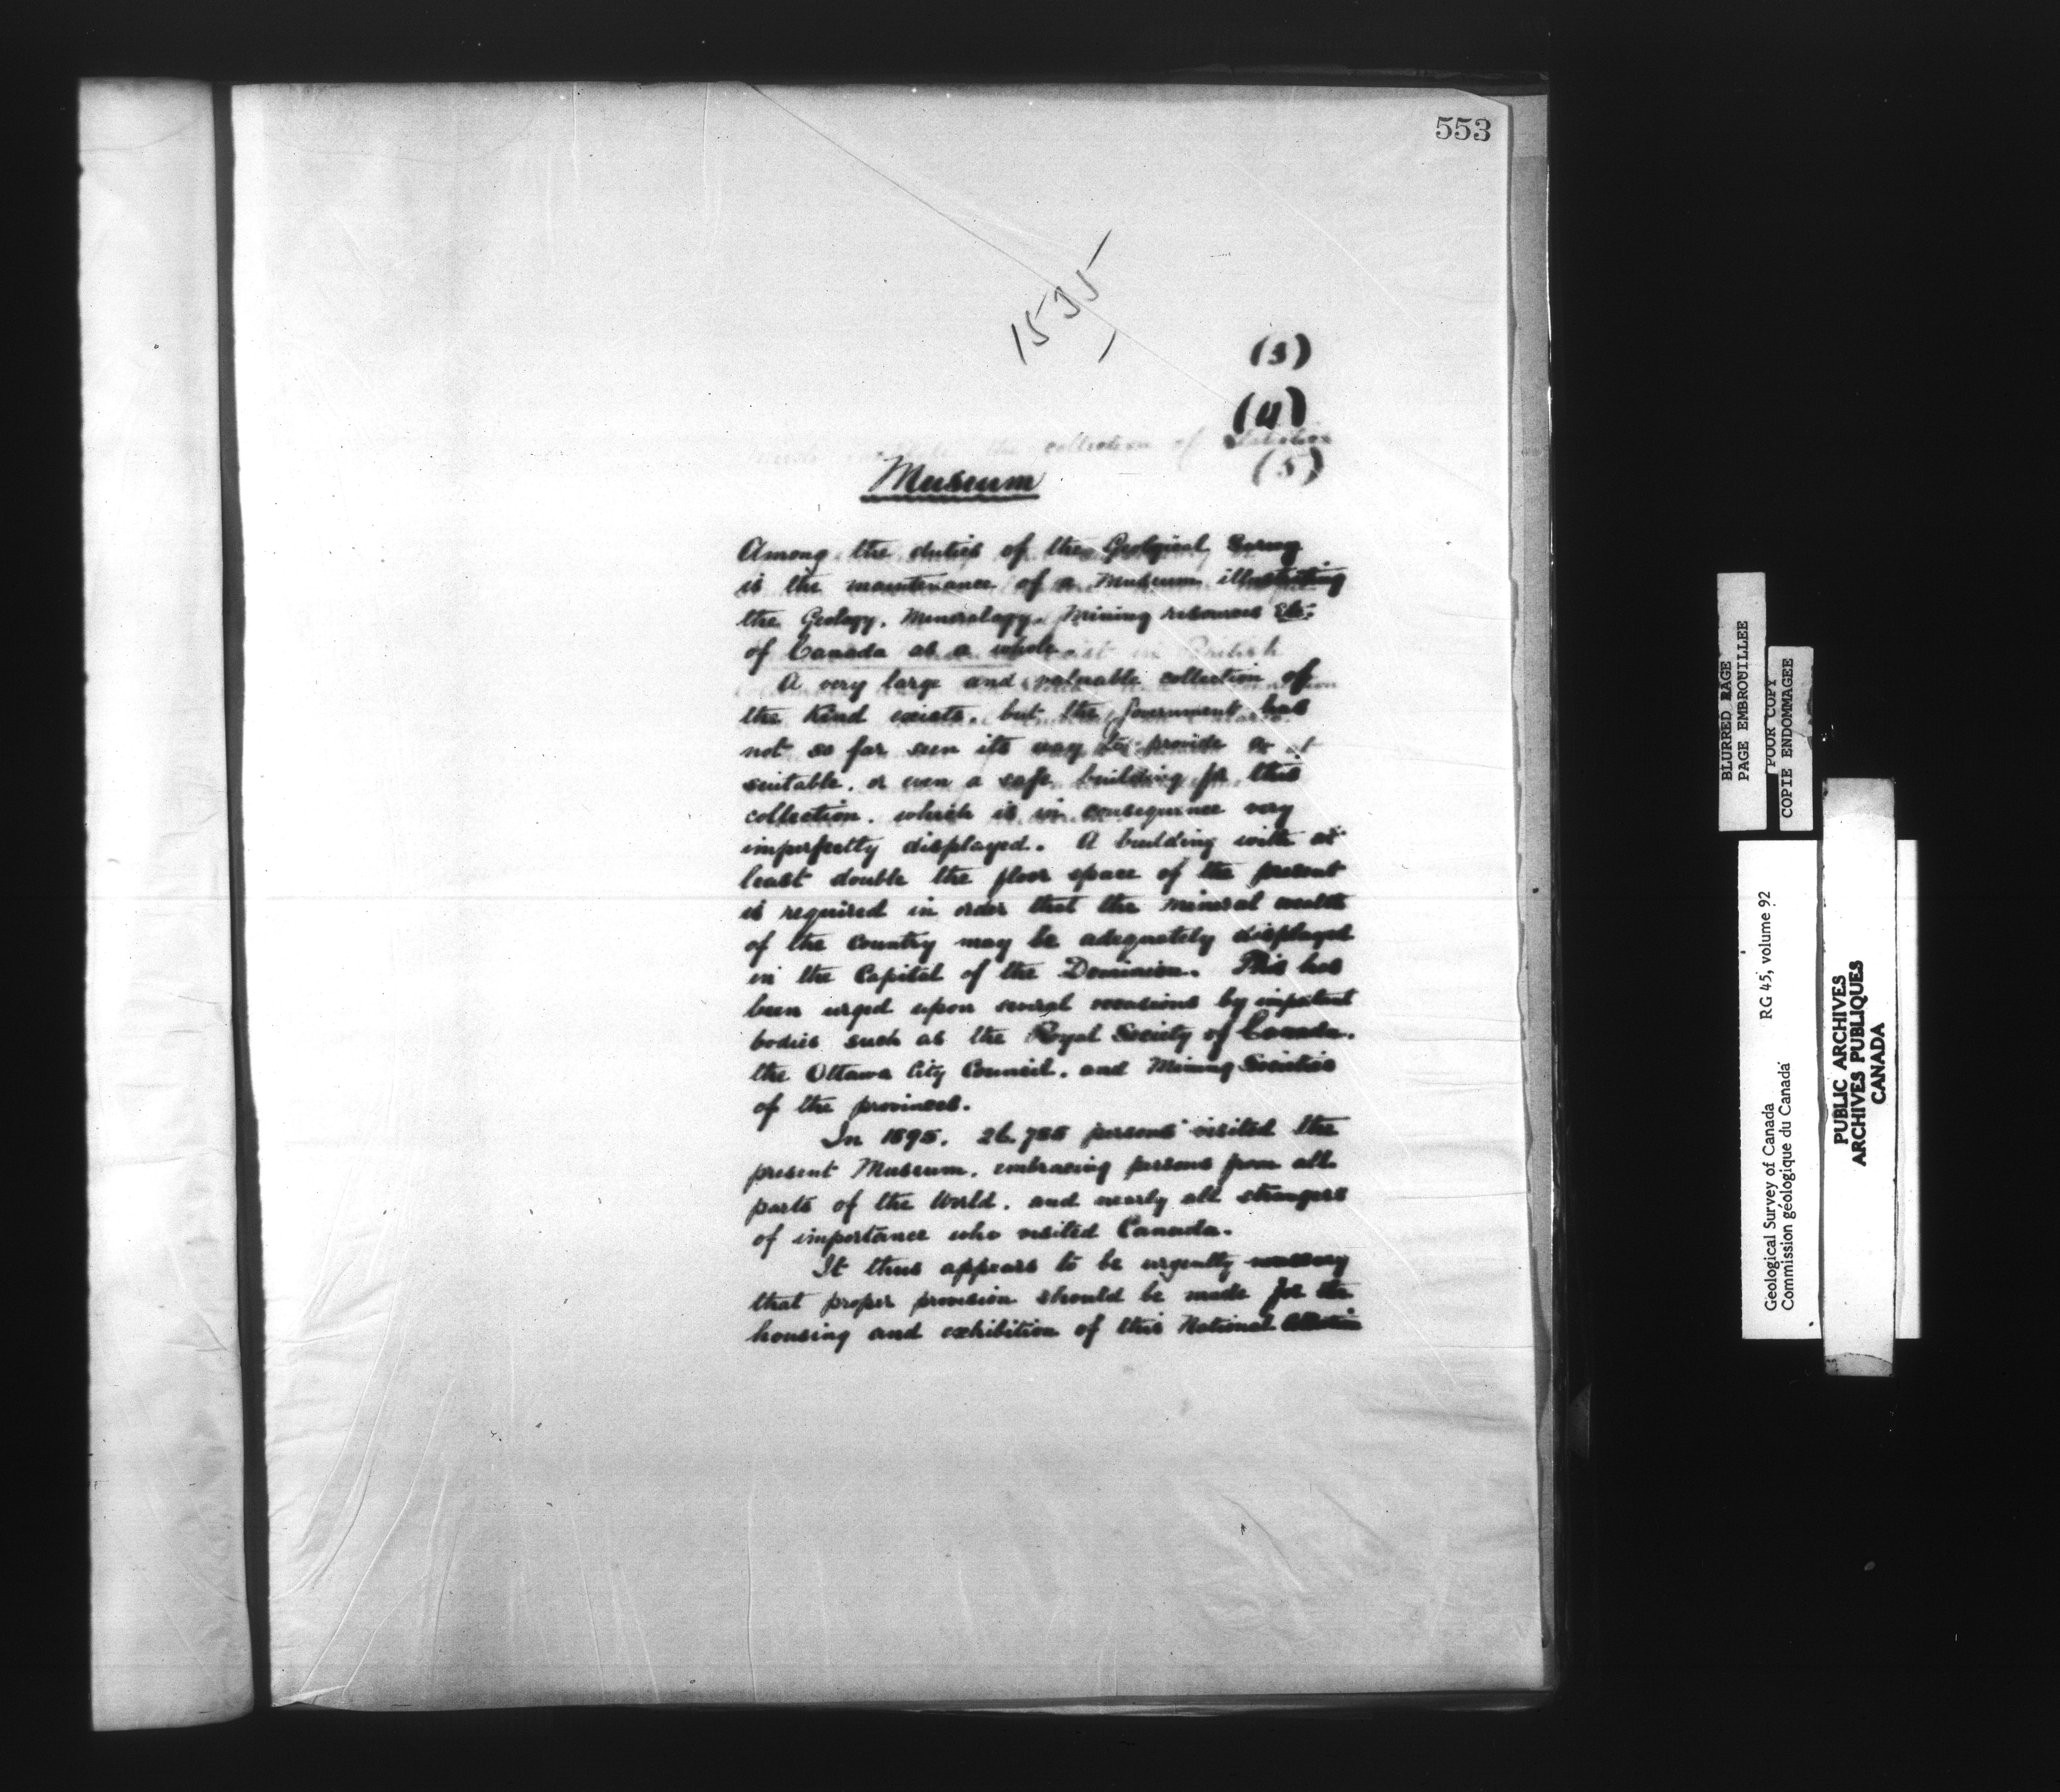 553
1535
(3)
(4)
the collection of Statistics
(5)
Museum
Among the duties of the Geological Survey
is the maintenance of a Museum illustrating
the Geology, Mineralogy, Mining resources Etc.
of Canada as a whole
A very large and valuable collection of
the Kind exists, but the Government has
not so far seen its way to provide a
suitable, or even a safe building for this
collection, which is in consequence very
imperfectly displayed. A building with at
least double the floor space of the present
is required in order that the mineral wealth
of the Country may be adequately displayed
in the Capital of the Dominion. This has
been urged upon several occasions by important
bodies such as the Royal Society of Canada,
the Ottawa City Council, and Mining Societies
of the provinces.
In 1895, persons visited the
present Museum, embracing persons from all
parts of the World, and nearly all strangers
of importance who visited Canada.
It thus appears to be urgently necessary
that proper provision should be made for the
housing and exhibition of this National Collection
BLURRED PAGE
PAGE EMBROUILLEE
POOR COPY
COPIE ENDOMMAGEE
Geological Survey of Canada RG 45, volume 92
Commission géologique du Canada
PUBLIC ARCHIVES
ARCHIVES PUBLIQUES
CANADA